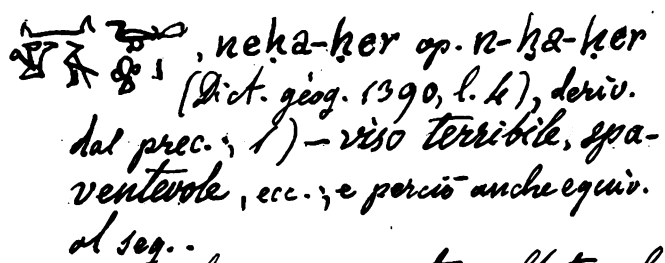 , neḥa-ḥer op. n-ḥa-ḥer
(Dict. géog. 1390, l. 4), deriv.
dal prec.; 1) – viso terribile, spa-
ventevole, ecc.; e perciò anche equiv.
al seg..